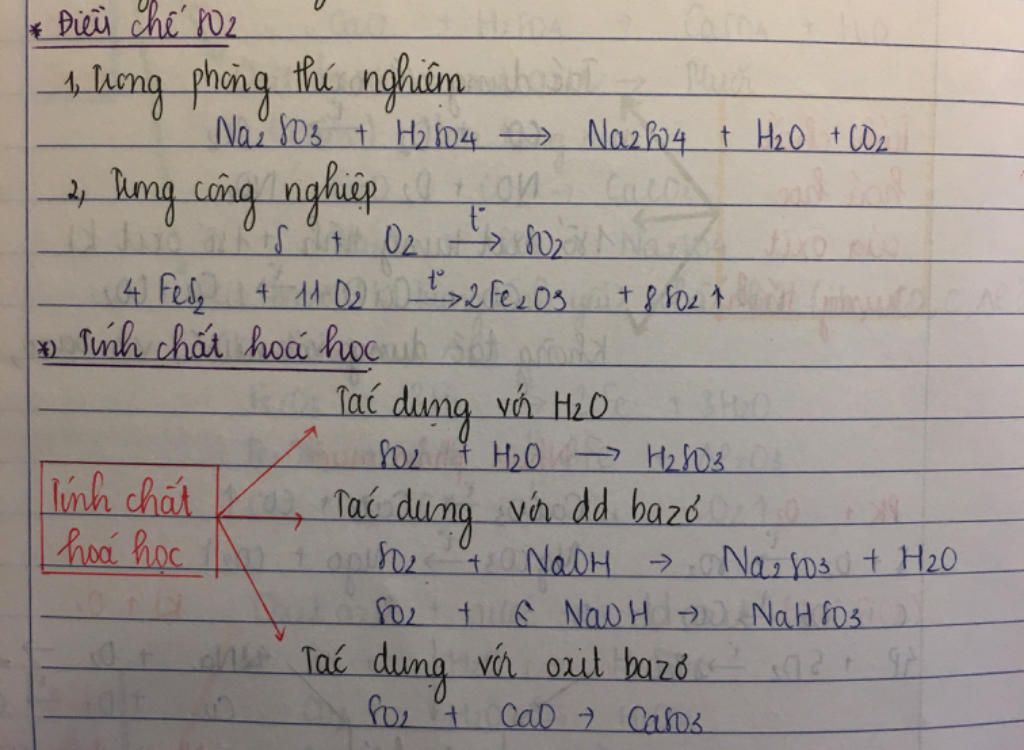 * Điều chế SO2
1, Trong phòng thí nghiệm
Na2SO3 + H2SO4 → Na2SO4 + H2O + CO2
2, Trong công nghiệp
S + O2 t°→ SO2
4 FeS2 + 11 O2 t°→ 2Fe2O3 + 8SO2↑
*) Tính chất hoá học
Tác dụng với H2O
SO2 + H2O → H2SO3
Tính chất hoá học
Tác dụng với dd bazơ
SO2 + NaOH → Na2SO3 + H2O
SO2 + NaOH → NaHSO3
Tác dụng với oxit bazơ
SO2 + CaO → CaSO3